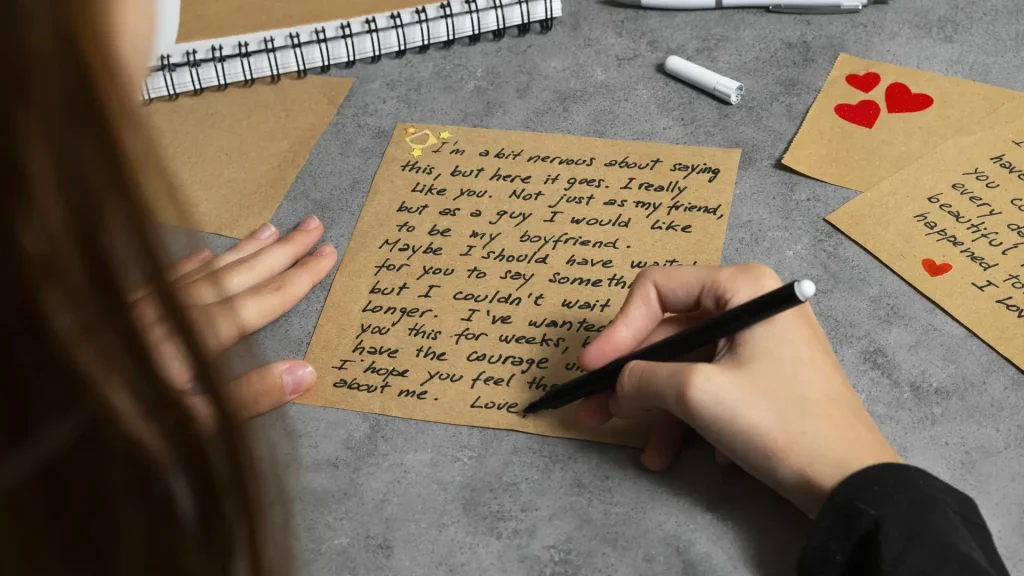 I'm a bit nervous about saying
this, but here it goes. I really
like you. Not just as my friend,
but as a guy I would like
to be my boyfriend.
Maybe I should have
for you to say
but I couldn't wait
longer. I've
you this for weeks,
have the courage
I hope you feel
about me. Love
you
every
beautiful
happened to
I